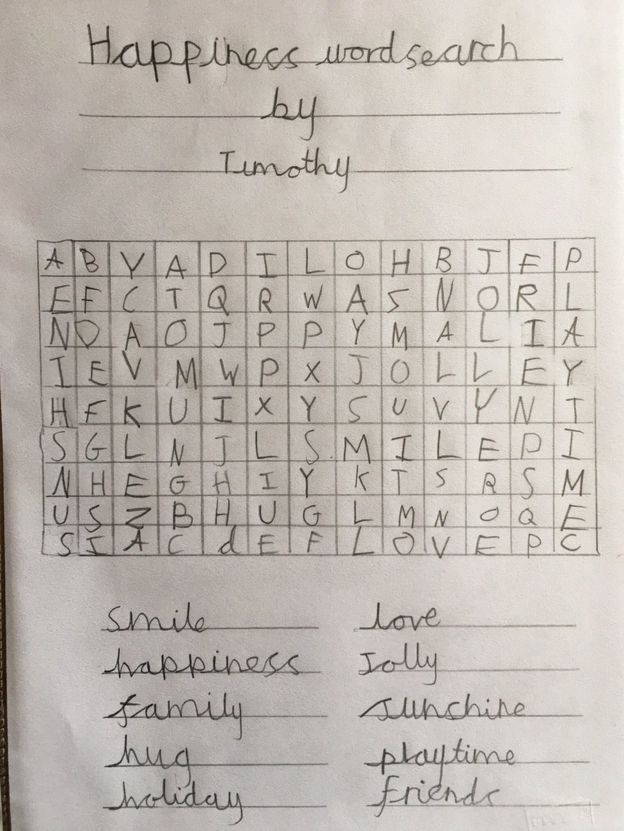 Happiness wordsearch
by
Timothy
A B Y A D I L O H B J F P
E F C T Q R W A S N O R L
N D A O J P P Y M A L I A
I E V M W P X J O L L E Y
H F K U I X Y S U V Y N T
S G L N J L S M I L E D I
N H E G H I Y K T S R S M
U S Z B H U G L M N O Q E
S I A C d E F L O V E P C
smile love
happiness Jolly
family sunshine
hug playtime
holiday friends